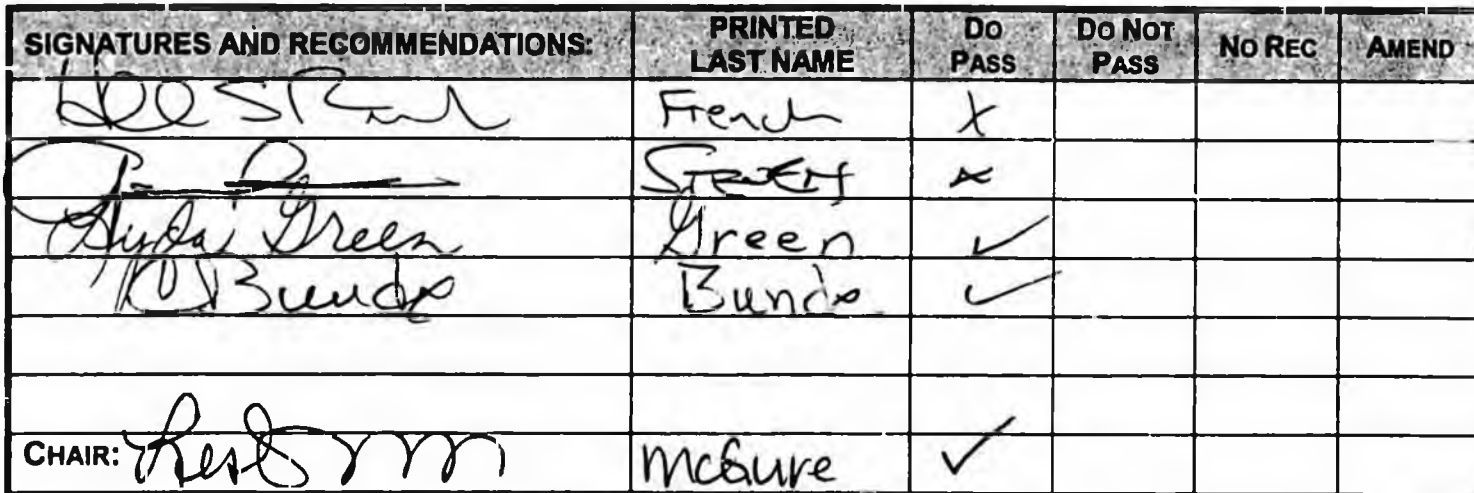 SIGNATURES AND RECOMMENDATIONS: PRINTED LAST NAME DO PASS DO NOT PASS NO REC AMEND
French X
x
Linda Green Green ✓
Bunde Bunde ✓
CHAIR: McGuire ✓